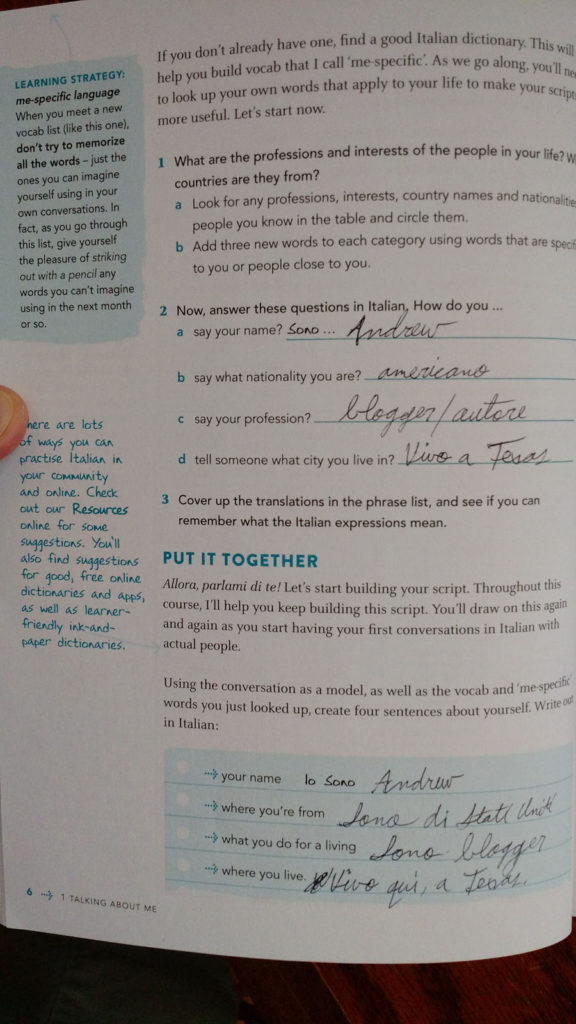 LEARNING STRATEGY:
me-specific language
When you meet a new
vocab list (like this one),
don't try to memorize
all the words – just the
ones you can imagine
yourself using in your
own conversations. In
fact, as you go through
this list, give yourself
the pleasure of striking
out with a pencil any
words you can't imagine
using in the next month
or so.
here are lots
of ways you can
practise Italian in
your community
and online. Check
out our Resources
online for some
suggestions. You'll
also find suggestions
for good, free online
dictionaries and apps,
as well as learner-
friendly ink-and-
paper dictionaries.
If you don't already have one, find a good Italian dictionary. This will
help you build vocab that I call 'me-specific'. As we go along, you'll
to look up your own words that apply to your life to make your script
more useful. Let's start now.
1 What are the professions and interests of the people in your life?
countries are they from?
a Look for any professions, interests, country names and nationalitie
people you know in the table and circle them.
b Add three new words to each category using words that are specif
to you or people close to you.
2 Now, answer these questions in Italian, How do you ...
a say your name? Sono ... Andrew
b say what nationality you are? americano
c say your profession? blogger/autore
d tell someone what city you live in? Vivo a Texas
3 Cover up the translations in the phrase list, and see if you can
remember what the Italian expressions mean.
PUT IT TOGETHER
Allora, parlami di te! Let's start building your script. Throughout this
course, I'll help you keep building this script. You'll draw on this again
and again as you start having your first conversations in Italian with
actual people.
Using the conversation as a model, as well as the vocab and 'me-specific'
words you just looked up, create four sentences about yourself. Write out
in Italian:
your name Io sono Andrew
where you're from Sono di Stati Uniti
what you do for a living Sono blogger
where you live. Vivo qui, a Texas.
6 1 TALKING ABOUT ME